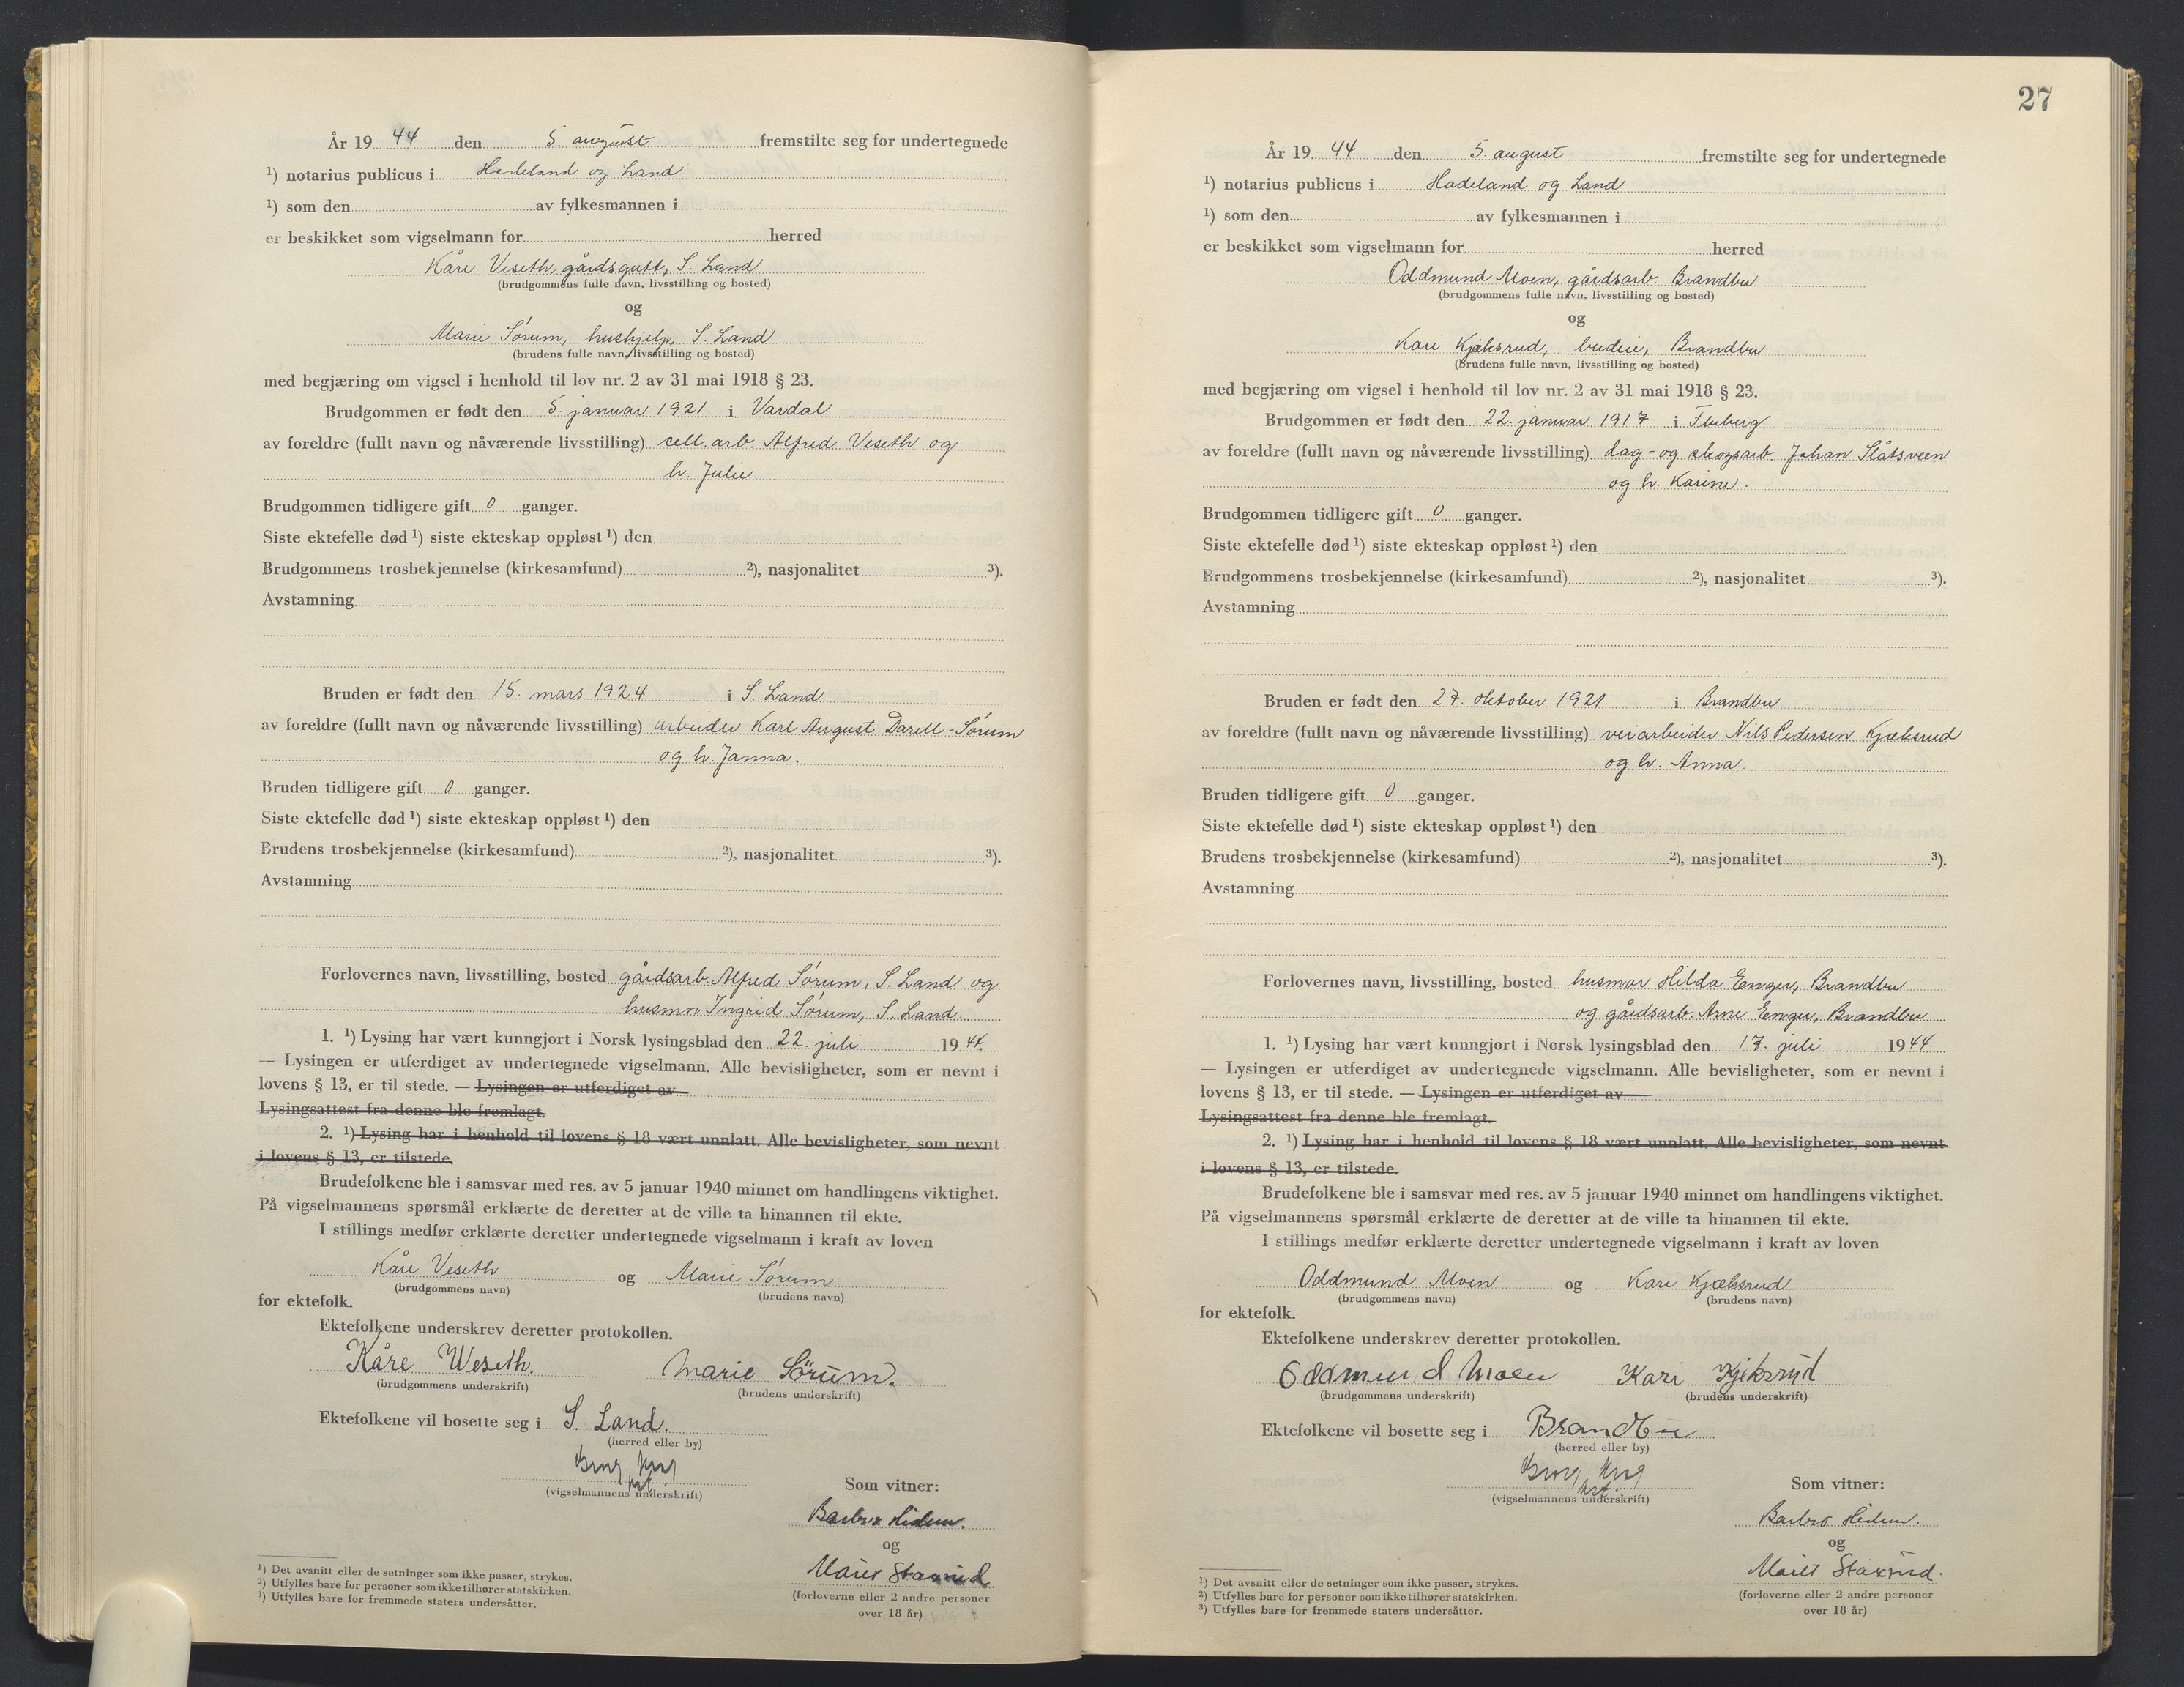 År 19 44 den 5. august fremstilte seg for undertegnede
¹) notarius publicus i Hadeland og Land
¹) som den av fylkesmannen i
er beskikket som vigselmann for herred
Kåre Veseth, gårdsgutt, S. Land
(brudgommens fulle navn, livsstilling og bosted)
og
Marie Sørum, hushjelp, S. Land
(brudens fulle navn, livsstilling og bosted)
med begjæring om vigsel i henhold til lov nr. 2 av 31 mai 1918 § 23.
Brudgommen er født den 5. januar 1921 i Vardal
av foreldre (fullt navn og nåværende livsstilling) cell. arb. Alfred Veseth og
h. Julie.
Brudgommen tidligere gift 0 ganger.
Siste ektefelle død ¹) siste ekteskap oppløst ¹) den
Brudgommens trosbekjennelse (kirkesamfund) ²), nasjonalitet ³).
Avstamning
Bruden er født den 15. mars 1924 i S. Land
av foreldre (fullt navn og nåværende livsstilling) arbeider Karl August Darell-Sørum
og h. Janna.
Bruden tidligere gift 0 ganger.
Siste ektefelle død ¹) siste ekteskap oppløst ¹) den
Brudens trosbekjennelse (kirkesamfund) ²), nasjonalitet ³).
Avstamning
Forlovernes navn, livsstilling, bosted gårdsarb. Alfred Sørum, S. Land og
husmor Ingrid Sørum, S. Land
1. ¹) Lysing har vært kunngjort i Norsk lysingsblad den 22. juli 19 44.
— Lysingen er utferdiget av undertegnede vigselmann. Alle bevisligheter, som er nevnt i
lovens § 13, er til stede. — Lysingen er utferdiget av
Lysingsattest fra denne ble fremlagt.
2. ¹) Lysing har i henhold til lovens § 18 vært unnlatt. Alle bevisligheter, som nevnt
i lovens § 13, er tilstede.
Brudefolkene ble i samsvar med res. av 5 januar 1940 minnet om handlingens viktighet.
På vigselmannens spørsmål erklærte de deretter at de ville ta hinannen til ekte.
I stillings medfør erklærte deretter undertegnede vigselmann i kraft av loven
Kåre Veseth og Marie Sørum
(brudgommens navn) (brudens navn)
for ektefolk.
Ektefolkene underskrev deretter protokollen.
Kåre Weseth. Marie Sörum.
(brudgommens underskrift) (brudens underskrift)
Ektefolkene vil bosette seg i S. Land.
(herred eller by)
(vigselmannens underskrift)
Som vitner:
Barbro
og
Marit Staxrud
(forloverne eller 2 andre personer
over 18 år)
¹) Det avsnitt eller de setninger som ikke passer, strykes.
²) Utfylles bare for personer som ikke tilhører statskirken.
³) Utfylles bare for fremmede staters undersåtter.
27
År 19 44 den 5. august fremstilte seg for undertegnede
¹) notarius publicus i Hadeland og Land
¹) som den av fylkesmannen i
er beskikket som vigselmann for herred
Oddmund Moen, gårdsarb. Brandbu
(brudgommens fulle navn, livsstilling og bosted)
og
Kari Kjæksrud, budeie, Brandbu
(brudens fulle navn, livsstilling og bosted)
med begjæring om vigsel i henhold til lov nr. 2 av 31 mai 1918 § 23.
Brudgommen er født den 22. januar 1917 i Fluberg
av foreldre (fullt navn og nåværende livsstilling) dag- og skogsarb. Johan Slåtsveen
og h. Karine.
Brudgommen tidligere gift 0 ganger.
Siste ektefelle død ¹) siste ekteskap oppløst ¹) den
Brudgommens trosbekjennelse (kirkesamfund) ²), nasjonalitet ³).
Avstamning
Bruden er født den 27. oktober 1921 i Brandbu
av foreldre (fullt navn og nåværende livsstilling) veiarbeider Nils Pedersen Kjæksrud
og h. Anna.
Bruden tidligere gift 0 ganger.
Siste ektefelle død ¹) siste ekteskap oppløst ¹) den
Brudens trosbekjennelse (kirkesamfund) ²), nasjonalitet ³).
Avstamning
Forlovernes navn, livsstilling, bosted husmor Hilda Enger, Brandbu
og gårdsarb. Arne Enger, Brandbu
1. ¹) Lysing har vært kunngjort i Norsk lysingsblad den 17. juli 19 44.
— Lysingen er utferdiget av undertegnede vigselmann. Alle bevisligheter, som er nevnt i
lovens § 13, er til stede. — Lysingen er utferdiget av
Lysingsattest fra denne ble fremlagt.
2. ¹) Lysing har i henhold til lovens § 18 vært unnlatt. Alle bevisligheter, som nevnt
i lovens § 13, er tilstede.
Brudefolkene ble i samsvar med res. av 5 januar 1940 minnet om handlingens viktighet.
På vigselmannens spørsmål erklærte de deretter at de ville ta hinannen til ekte.
I stillings medfør erklærte deretter undertegnede vigselmann i kraft av loven
Oddmund Moen og Kari Kjæksrud
(brudgommens navn) (brudens navn)
for ektefolk.
Ektefolkene underskrev deretter protokollen.
Oddmund Moen Kari Kjeksrud
(brudgommens underskrift) (brudens underskrift)
Ektefolkene vil bosette seg i Brandbu
(herred eller by)
(vigselmannens underskrift)
Som vitner:
Barbro
og
Marit Staxrud.
(forloverne eller 2 andre personer
over 18 år)
¹) Det avsnitt eller de setninger som ikke passer, strykes.
²) Utfylles bare for personer som ikke tilhører statskirken.
³) Utfylles bare for fremmede staters undersåtter.